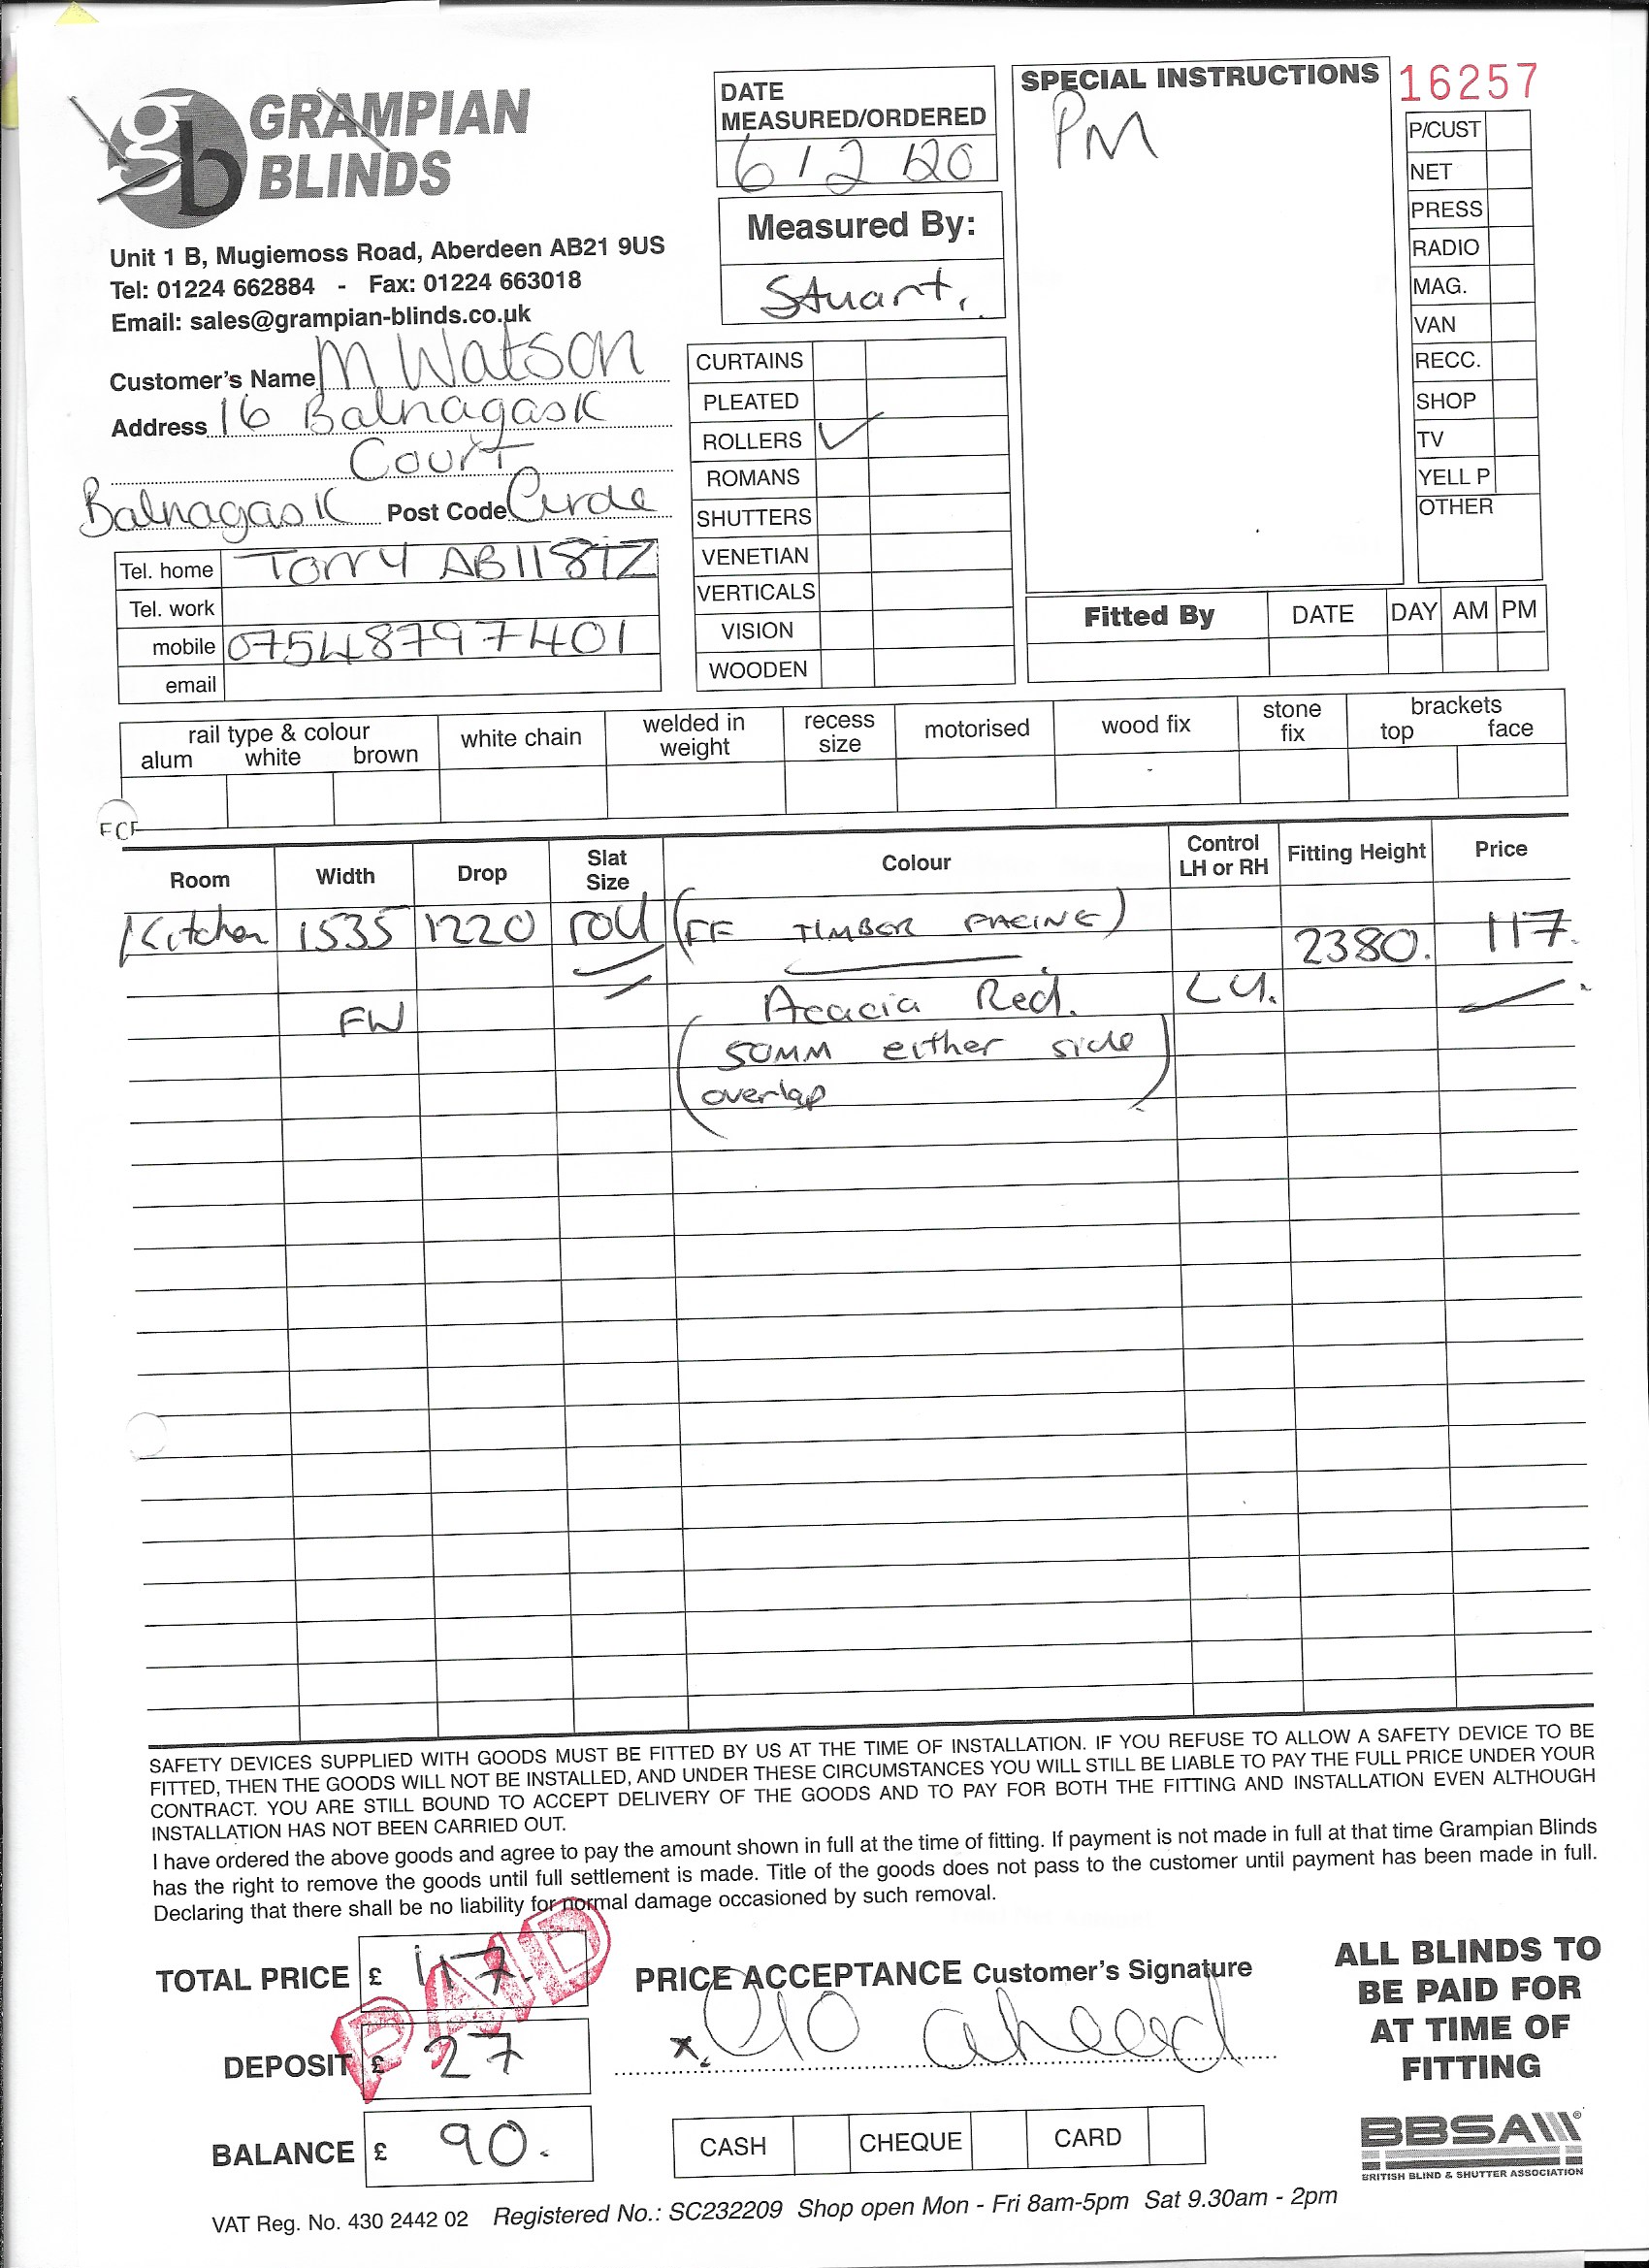 GRAMPIAN
BLINDS
gb
Unit 1 B, Mugiemoss Road, Aberdeen AB21 9US
Tel: 01224 662884 - Fax: 01224 663018
Email: sales@grampian-blinds.co.uk
Customer's Name M Watson
Address 16 Balnagask
Court
Balnagask Post Code Circle
Tel. home Torry AB11 8TZ
Tel. work
mobile 07548797401
email
DATE
MEASURED/ORDERED
6/2/20
Measured By:
Stuart.
CURTAINS
PLEATED
ROLLERS ✓
ROMANS
SHUTTERS
VENETIAN
VERTICALS
VISION
WOODEN
SPECIAL INSTRUCTIONS
PM
16257
P/CUST
NET
PRESS
RADIO
MAG.
VAN
RECC.
SHOP
TV
YELL P
OTHER
Fitted By DATE DAY AM PM
rail type & colour
alum white brown
white chain
welded in
weight
recess
size
motorised
wood fix
stone
fix
brackets
top face
Room Width Drop Slat Size Colour Control LH or RH Fitting Height Price
Kitchen 1535 1220 roll (FF TIMBER FACING) 2380. 117.
FW Acacia Red. LH.
(50MM either side
overlap)
SAFETY DEVICES SUPPLIED WITH GOODS MUST BE FITTED BY US AT THE TIME OF INSTALLATION. IF YOU REFUSE TO ALLOW A SAFETY DEVICE TO BE
FITTED, THEN THE GOODS WILL NOT BE INSTALLED, AND UNDER THESE CIRCUMSTANCES YOU WILL STILL BE LIABLE TO PAY THE FULL PRICE UNDER YOUR
CONTRACT. YOU ARE STILL BOUND TO ACCEPT DELIVERY OF THE GOODS AND TO PAY FOR BOTH THE FITTING AND INSTALLATION EVEN ALTHOUGH
INSTALLATION HAS NOT BEEN CARRIED OUT.
I have ordered the above goods and agree to pay the amount shown in full at the time of fitting. If payment is not made in full at that time Grampian Blinds
has the right to remove the goods until full settlement is made. Title of the goods does not pass to the customer until payment has been made in full.
Declaring that there shall be no liability for normal damage occasioned by such removal.
TOTAL PRICE £ 117.
DEPOSIT £ 27
BALANCE £ 90.
PAID
PRICE ACCEPTANCE Customer's Signature
x. Go ahead
CASH CHEQUE CARD
ALL BLINDS TO
BE PAID FOR
AT TIME OF
FITTING
BBSA
BRITISH BLIND & SHUTTER ASSOCIATION
VAT Reg. No. 430 2442 02 Registered No.: SC232209 Shop open Mon - Fri 8am-5pm Sat 9.30am - 2pm